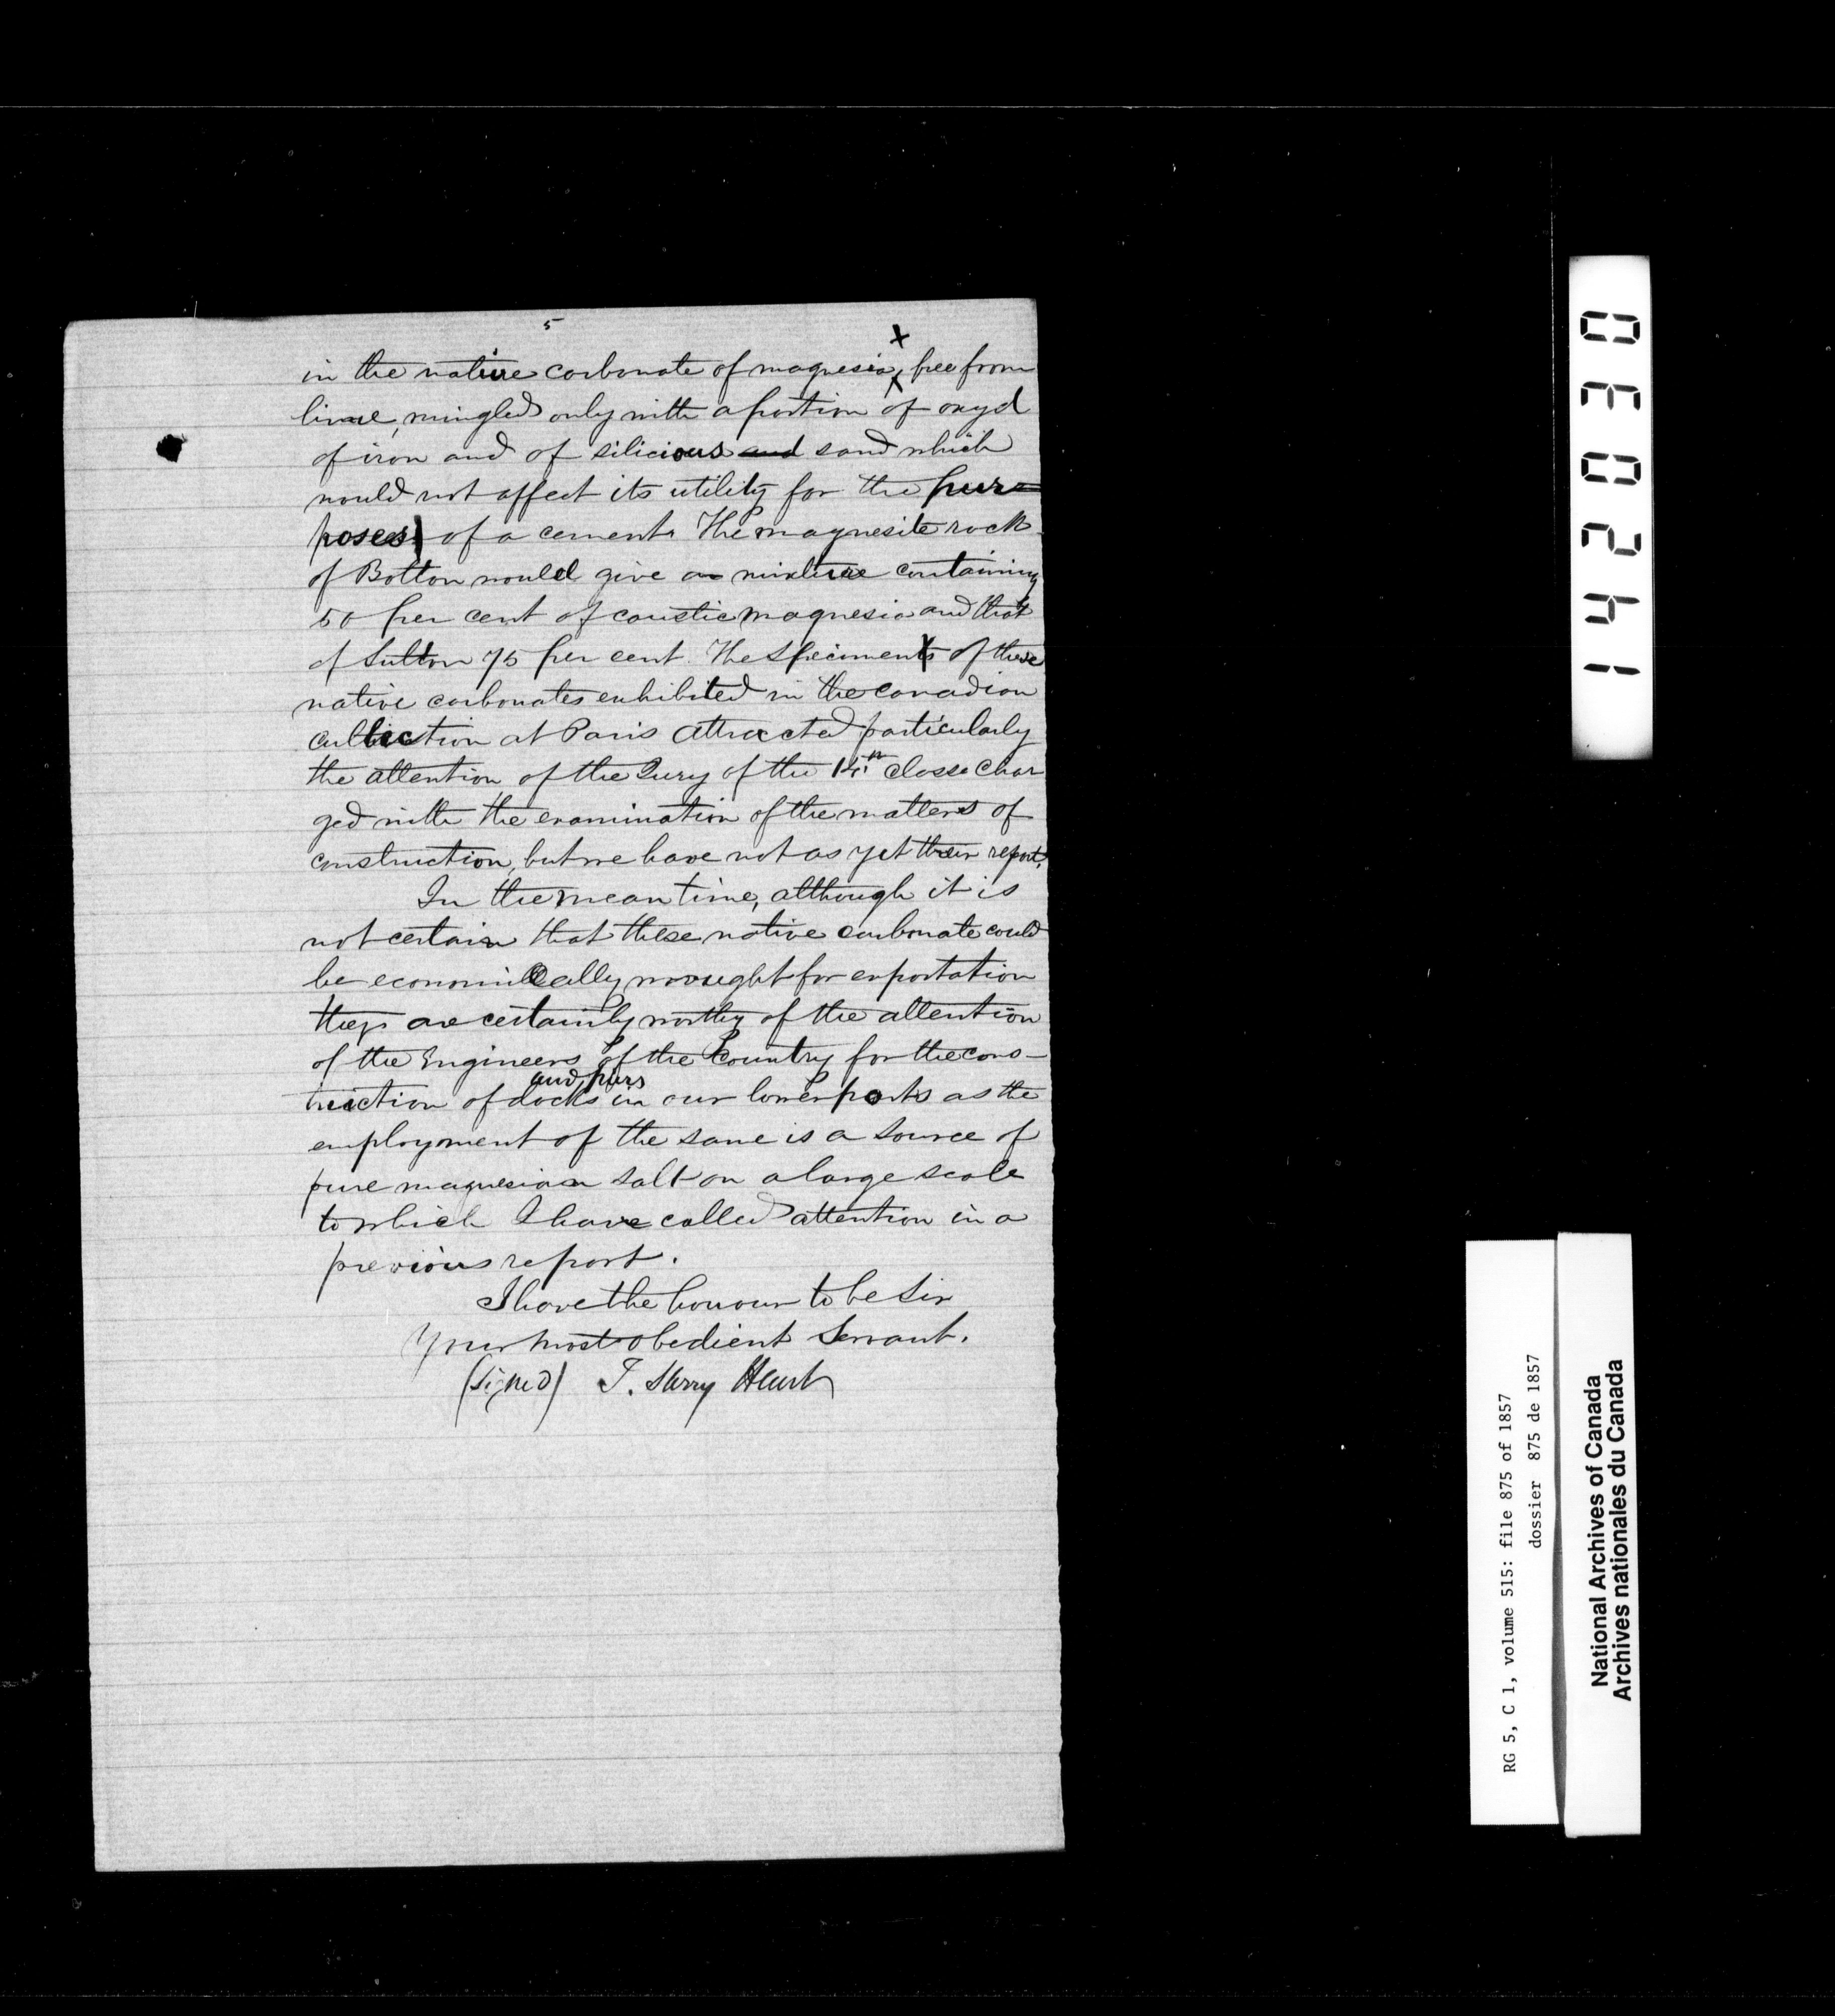 5
in the native carbonate of magnesia, free from
lime, mingled only with a portion of oxyd
of iron and of silicious and sand which
would not affect its utility for the pur-
poses of a cement. The magnesite rock
of Bolton would give a mixture containing
50 per cent of caustic magnesia and that
of Sutton 75 per cent. The specimens of these
native carbonates exhibited in the Canadian
collection at Paris attracted particularly
the attention of the Jury of the 14th classe char
ged with the examination of the matters of
construction, but we have not as yet their report.
In the mean time, although it is
not certain that these native carbonate could
be economically wrought for exportation
they are certainly worthy of the attention
of the Engineers of the Country for the cons-
truction of docks and piers in our lower ports as the
employment of the same is a source of
pure magnesian salt on a large scale
to which I have called attention in a
previous report.
I have the honour to be Sir
Your most obedient Servant.
(Signed) T. Sterry Hunt
142030
RG 5, C 1, volume 515: file 875 of 1857
dossier 875 de 1857
National Archives of Canada
Archives nationales du Canada